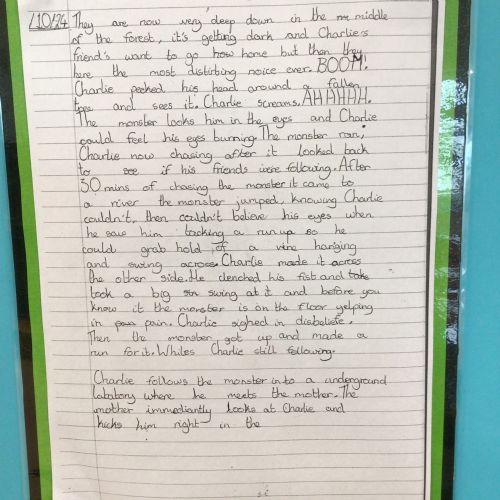 /10/24 They are now very deep down in the middle
of the forest, it's getting dark and Charlie's
friend's want to go how home but then they
here the most distirbing noice ever. BOOM!
Charlie peeked his head around a fallen
tree and sees it. Charlie screams. AHAHHH.
The monster looks him in the eyes and Charlie
could feel his eyes burning. The monster ran,
Charlie now chasing after it looked back
to see if his friends were following. After
30 mins of chasing the monster it came to
a river the monster jumped, knowing Charlie
couldn't, then couldn't believe his eyes when
he saw him tacking a run up so he
could grab hold of a vine hanging
and swing across. Charlie made it across
the other side. He clenched his fist and take
took a big swing at it and before you
know it the monster is on the floor yelping
in pain. Charlie sighed in disbeliefe.
Then the monster got up and made a
run for it. Whiles Charlie still following.
Charlie follows the monster in to a underground
labatory where he meets the mother. The
mother immediantly looks at Charlie and
kicks him right in the